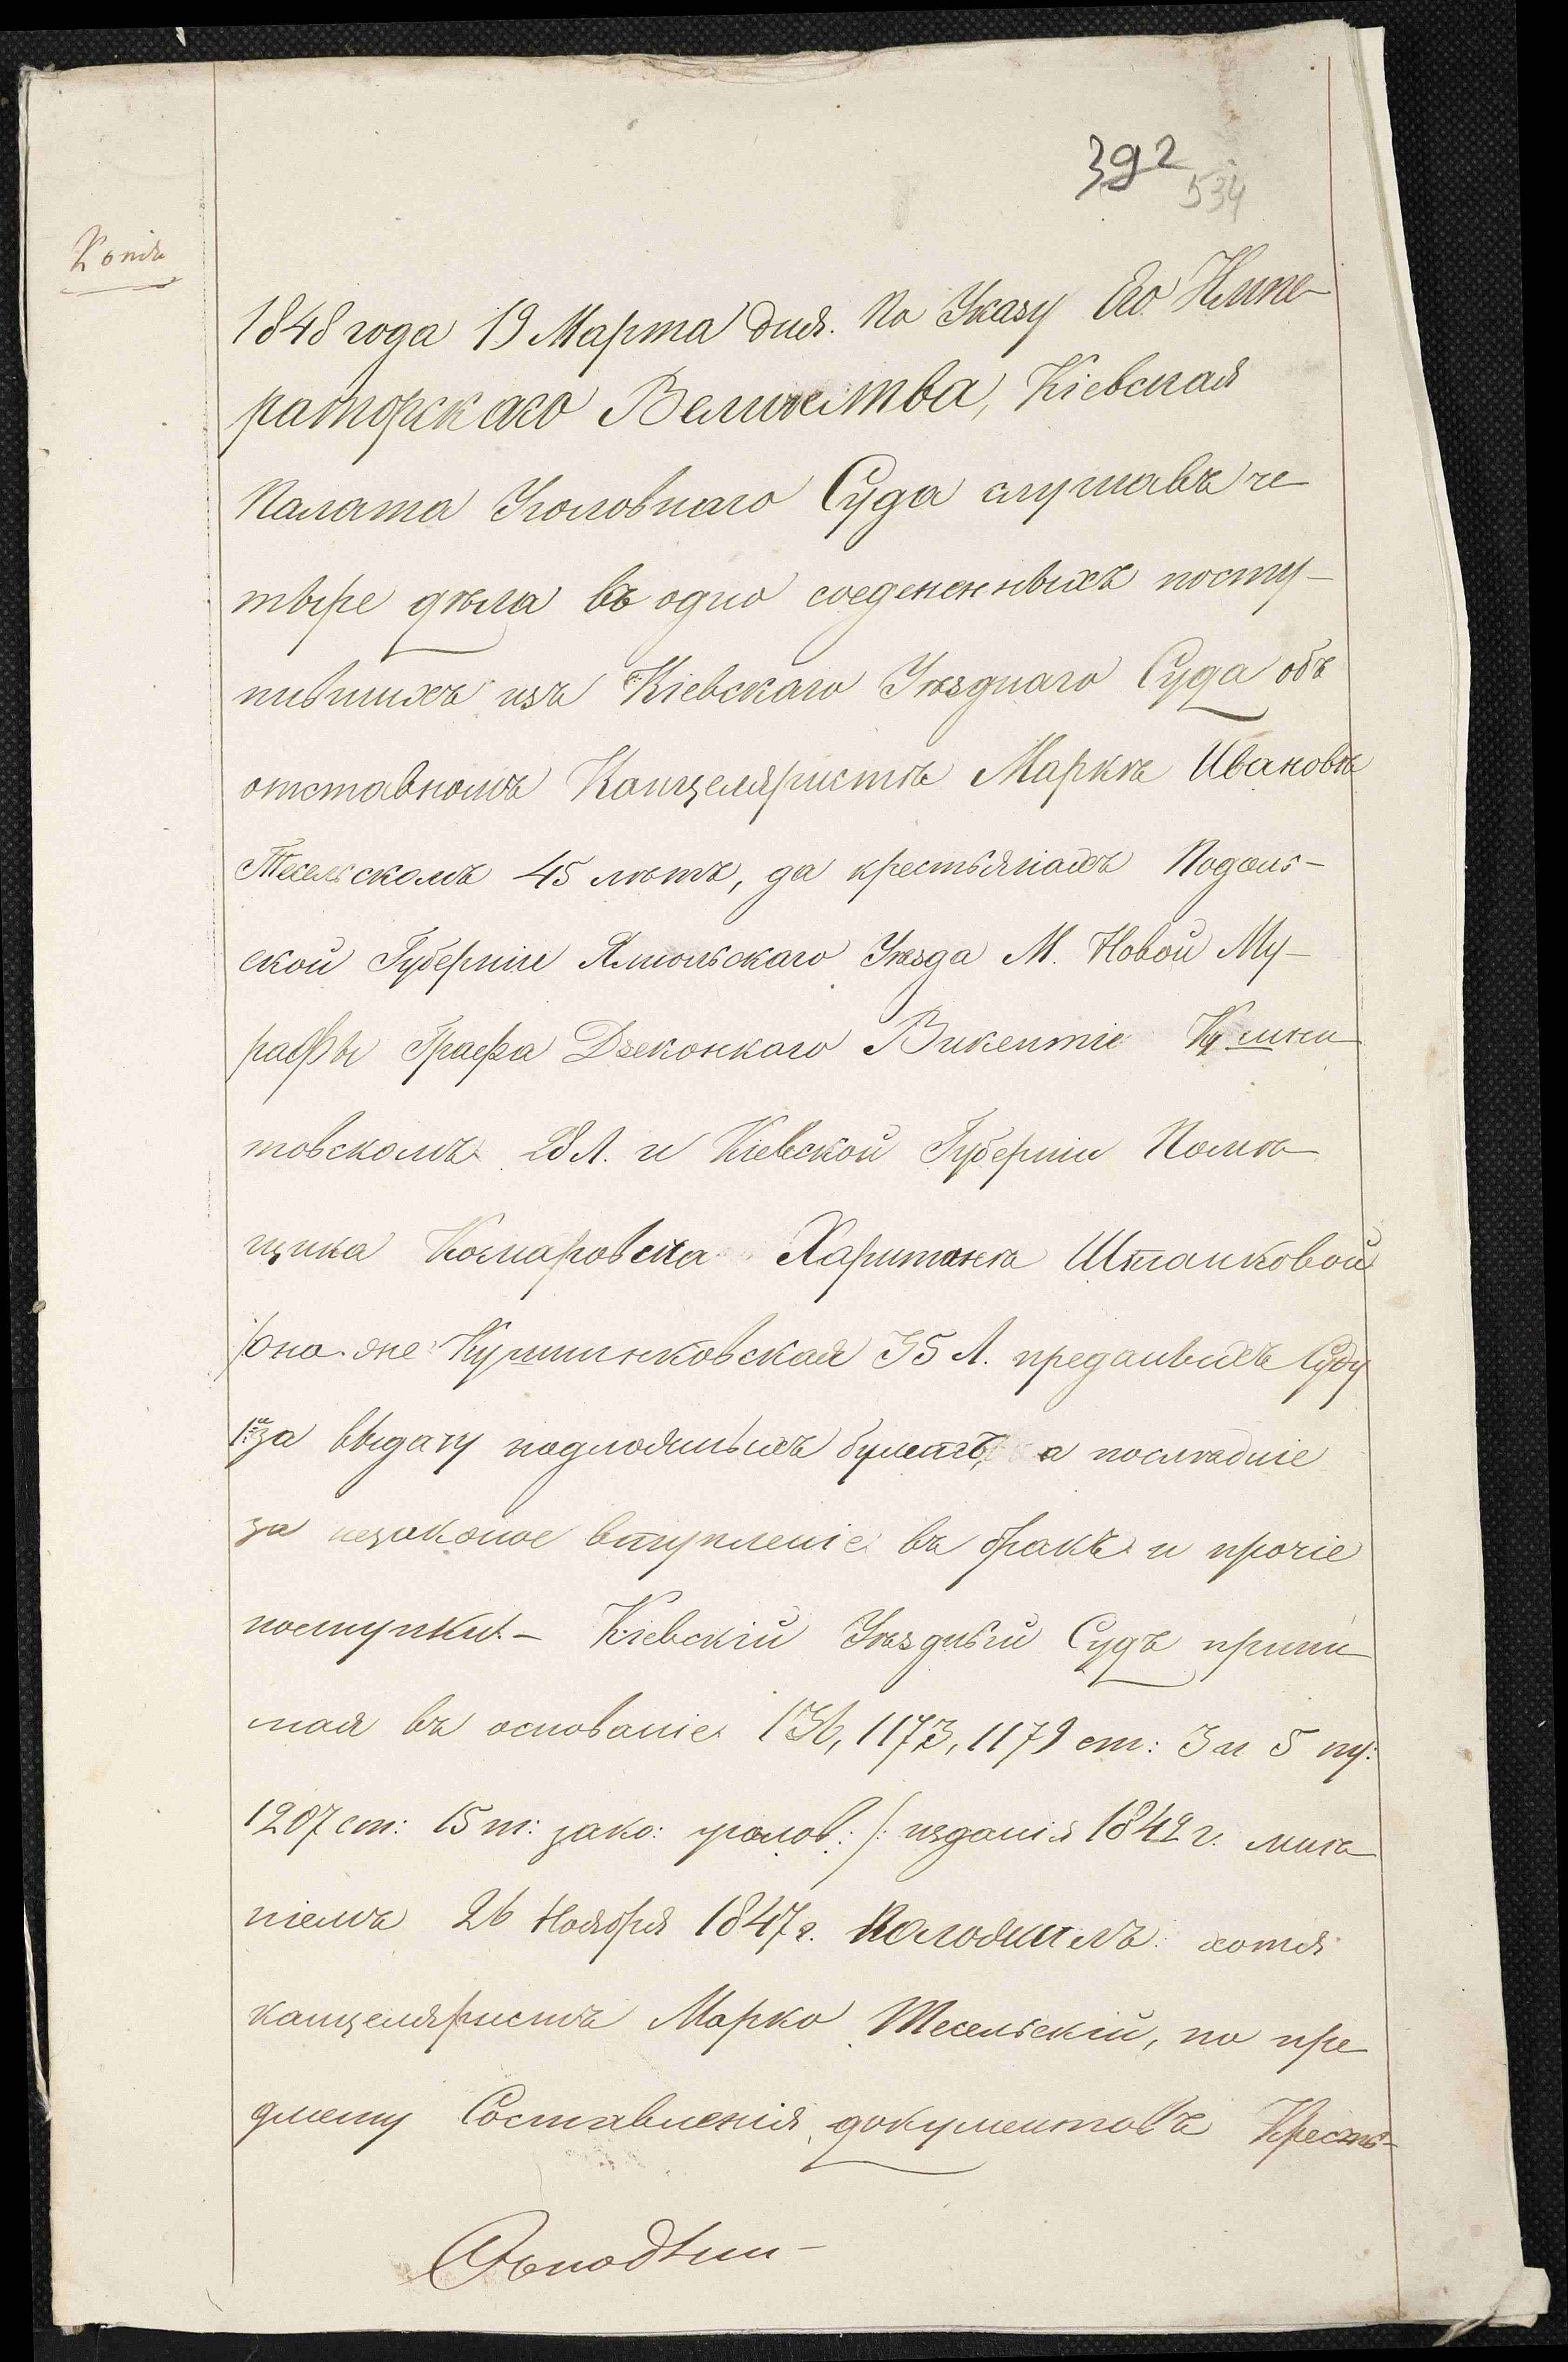 392
534
Копія
1848 года 19 Марта дня. По Указу Его Импе-
раторскаго Величества, Кіевская
Палата Уголовнаго Суда слушавъ че-
тыре дѣла въ одно соеденненныхъ посту-
пившихъ изъ Кіевскаго Уѣзднаго Суда объ
отставномъ Канцеляристѣ Маркѣ Ивановѣ
Тесельскомъ 45 лѣтъ, да крестьянахъ Подоль-
ской Губерніи Ямпольскаго Уѣзда М. Новой Му-
рафы Графа Дзеконкаго Викентіе
товскомъ 28 Л. и Кіевской Губерніи Помѣ-
щика Комаровска Харитинѣ Штанковой
/она же 35 Л. преданныхъ Суду
1й за выдачу подложныхъ билетъ, а послѣдніе
за незаконое вступленіе въ бракъ и прочіе
поступки. – Кіевскій Уѣздный Судъ прини-
мая въ основаніе 136, 1173, 1179 ст: 3 и 5 пу:
1207 ст: 15 т: зако: уголов: /: изданія 1842 г. мнѣ-
ніемъ 26 Ноября 1847 г. Положилъ: хотя
канцеляристъ Марко Тесельскій, по пре-
дмету Составленія документовъ Кресть-